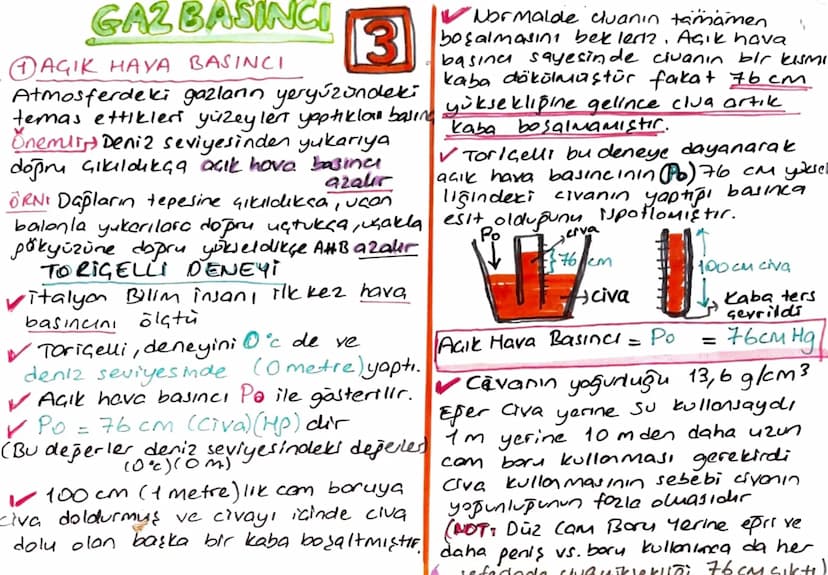 GAZ BASINCI
3
① AÇIK HAVA BASINCI
Atmosferdeki gazların yeryüzündeki
temas ettikleri yüzeyleri yaptıkları basınç
Önemli→ Deniz seviyesinden yukarıya
doğru çıkıldıkça açık hava basıncı
azalır
ÖRN: Dağların tepesine çıkıldıkça, uçan
balonla yukarılara doğru uçtukça, uçakla
gökyüzüne doğru yükseldikçe AHB azalır
TORİÇELLİ DENEYİ
✓ İtalyan Bilim insanı ilk kez hava
basıncını ölçtü
✓ Toriçelli, deneyini 0°c de ve
deniz seviyesinde (0 metre) yaptı.
✓ Açık hava basıncı Po ile gösterilir.
✓ Po = 76 cm (civa) (Hg) dır
(Bu değerler deniz seviyesindeki değerler)
(0°c) (0 m)
✓ 100 cm (1 metre)lik cam boruya
civa doldurmuş ve civayı içinde civa
dolu olan başka bir kaba boşaltmıştır.
✓ Normalde civanın tamamen
boşalmasını bekleriz. Açık hava
basıncı sayesinde civanın bir kısmı
kaba dökülmüştür fakat 76 cm
yüksekliğine gelince civa artık
kaba boşalmamıştır.
✓ Toriçelli bu deneye dayanarak
açık hava basıncının (Po) 76 cm yüksek
liğindeki civanın yaptığı basınca
eşit olduğunu ispatlamıştır.
Po
civa
76 cm
civa
100 cm civa
Kaba ters
çevrildi
Açık Hava Basıncı = Po = 76cm Hg
✓ Civanın yoğunluğu 13,6 g/cm³
Eğer civa yerine su kullansaydı
1 m yerine 10 m den daha uzun
cam boru kullanması gerekirdi
civa kullanmasının sebebi civanın
yoğunluğunun fazla olmasıdır
(NOT: Düz Cam Boru yerine eğri ve
daha geniş vs. boru kullanınca da her
seferinde civa yüksekliği 76 cm çıktı)